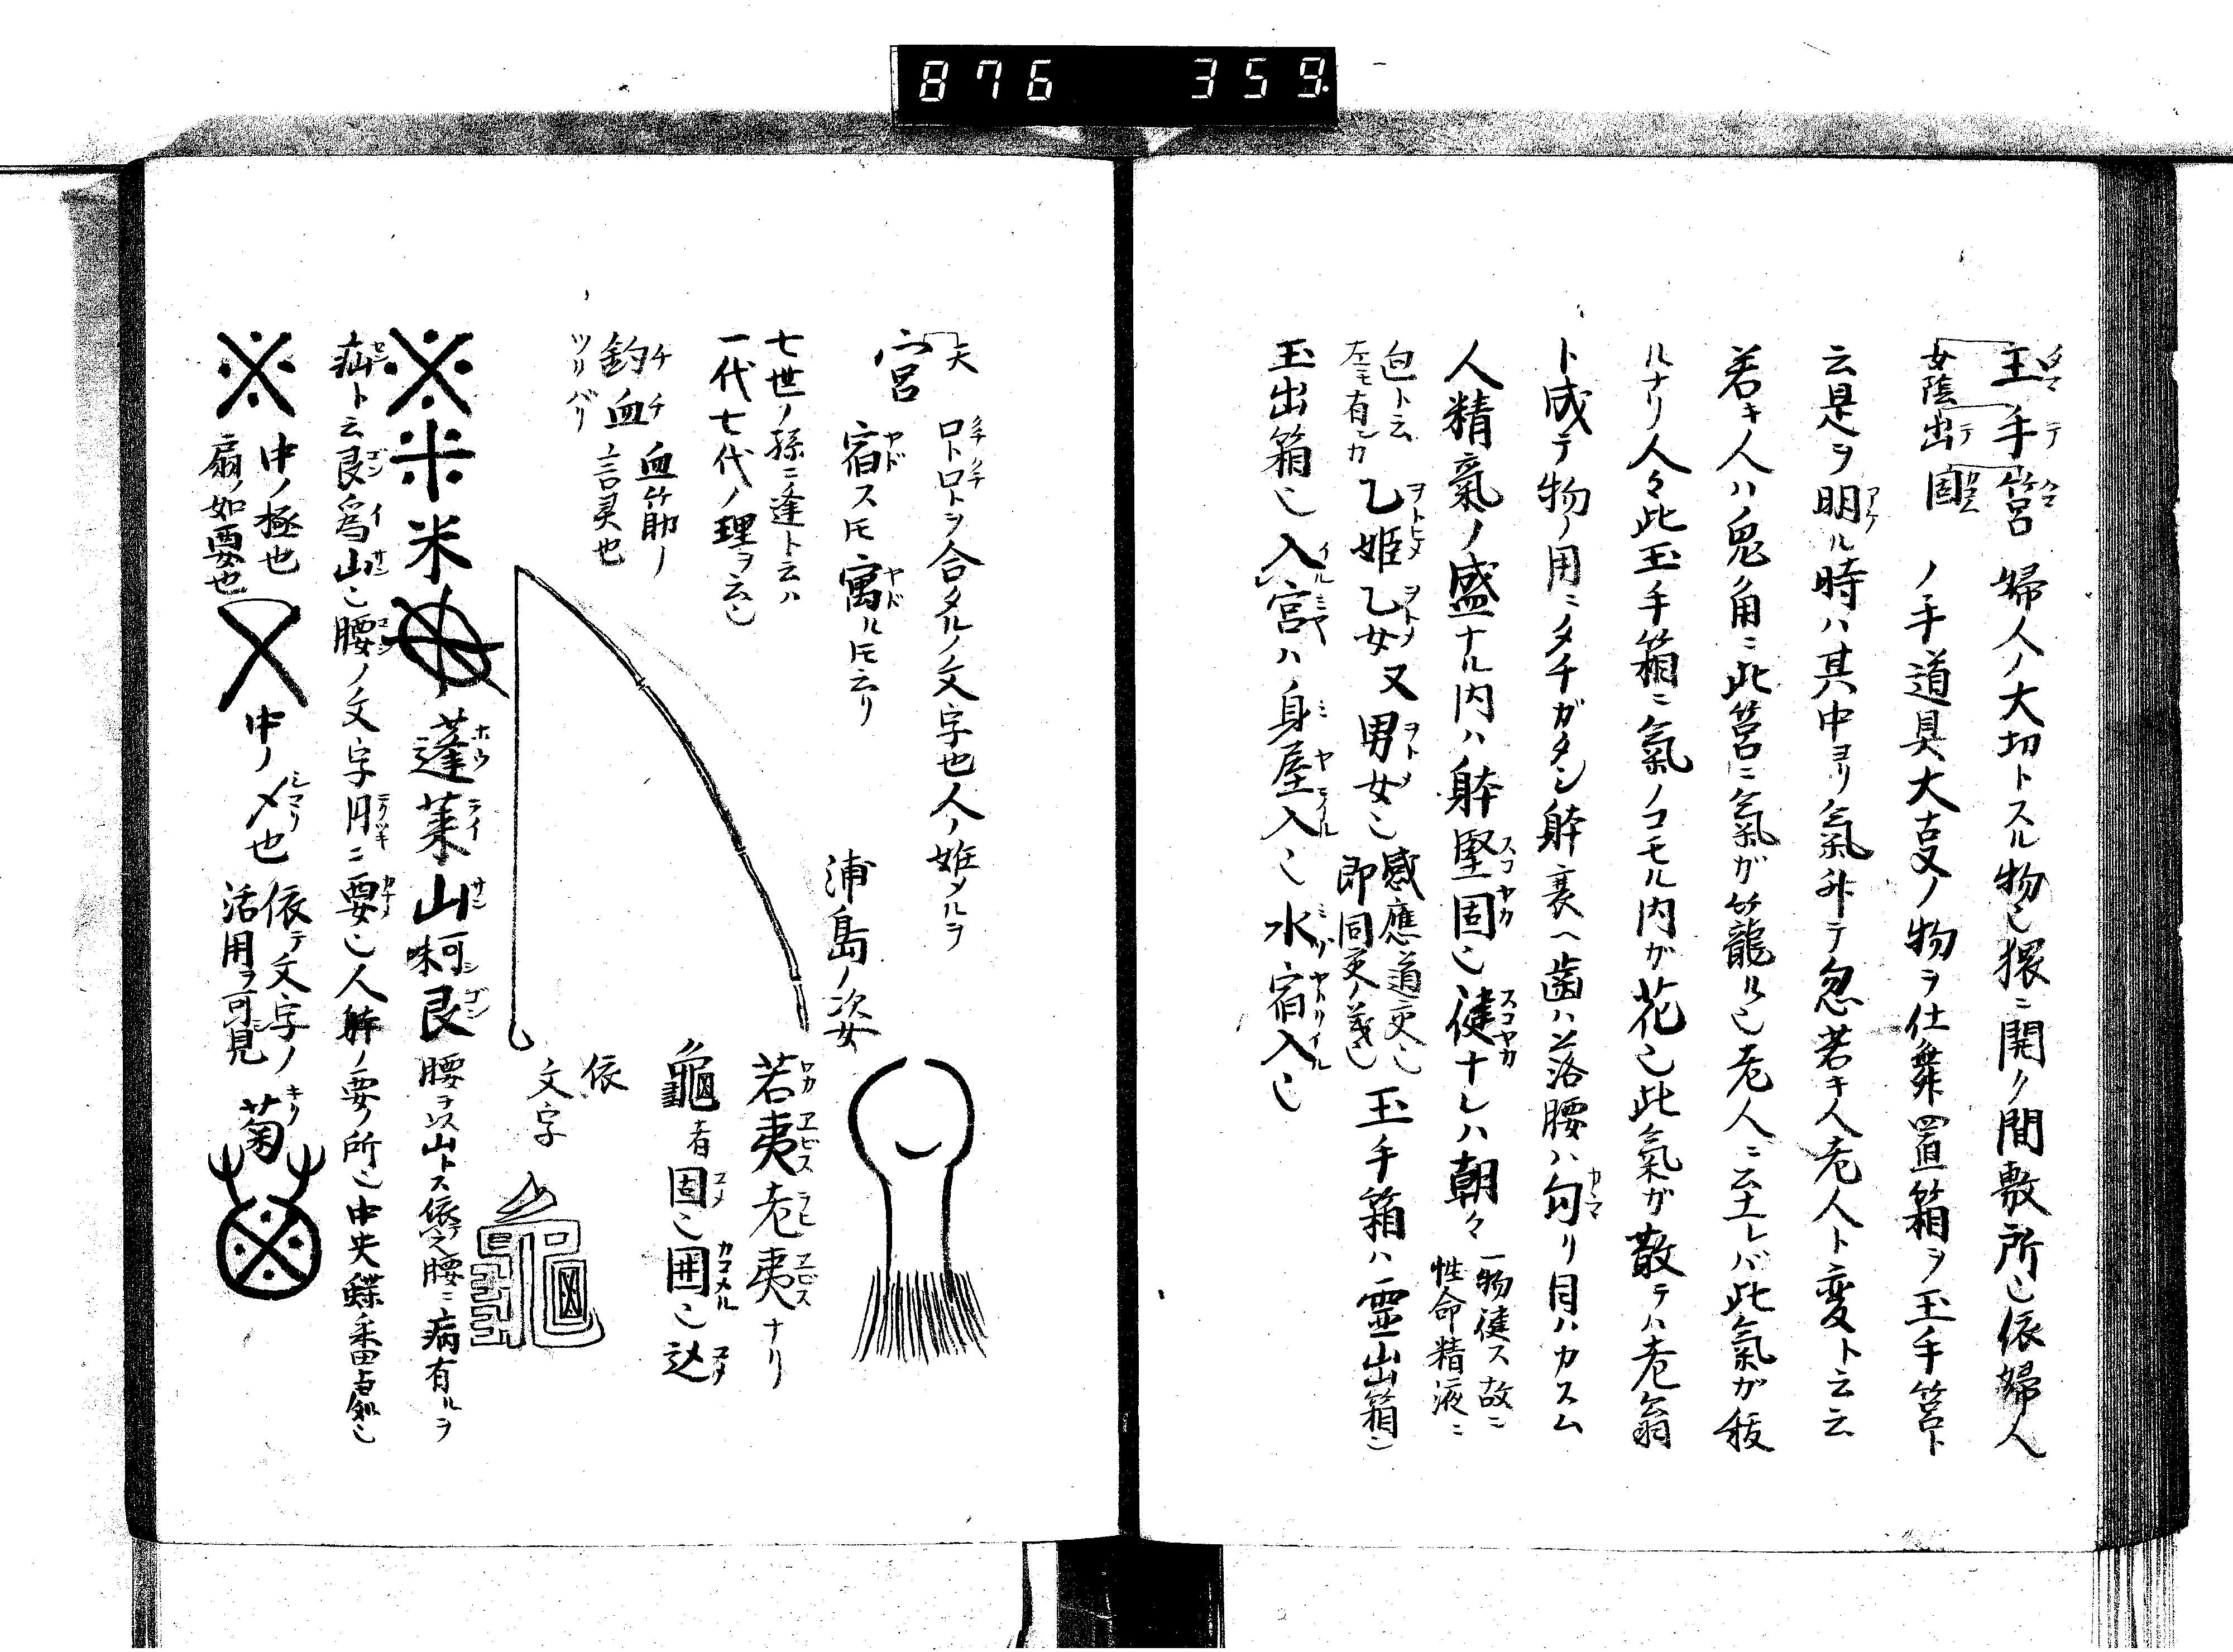 876 359
玉手筥 婦人ノ大切トスル物也猥ニ開ク間敷所也依婦人
女陰出固 ノ手道具大支ノ物ヲ仕舞置箱ヲ玉手筥ト
云是ヲ明ル時ハ其中ヨリ氣舛テ忽若キ人老人ト変ト云云
若キ人ハ鬼角ニ此筥ニ氣ガ籠ル也老人ニ至レバ此氣ガ
ルナリ人々此玉手箱ニ氣ノコモル内ガ花也此氣ガ散テハ老翁
ト成テ物ノ用ニタチガタシ躰衰ヘ歯ハ落腰ハ勾リ目ハカスム
人精氣ノ盛ナル内ハ躰堅固也健ナレハ朝々 一物健ス故ニ
性命精液ニ
包ト云
左モ有ンカ 乙姫乙女又男女也感應道交也
即同交ノ義也 玉手箱ハ靈出箱也
玉出箱也入宮ハ身屋入也水宿入也
宮 ロトロトヲ合タルノ文字也人ノ姙メルヲ
宿スモ寓ルモ云リ
七世ノ孫ニ逢ト云ハ
一代七代ノ理ヲ云也
釣血 血筋ノ
言灵也
ツリバリ
浦島ノ次女
若夷老夷ナリ
龜者固也囲也込
依
文字
米 蓬莱山 艮 腰ヲ以山トス依テ腰ニ病有ルヲ
疝ト云艮爲山也腰ノ文字月ニ要也人躰ノ要ノ所也中央
中ノ極也
扇ノ如要也
中ノ〆也
依テ文字ノ
活用ヲ可見
菊